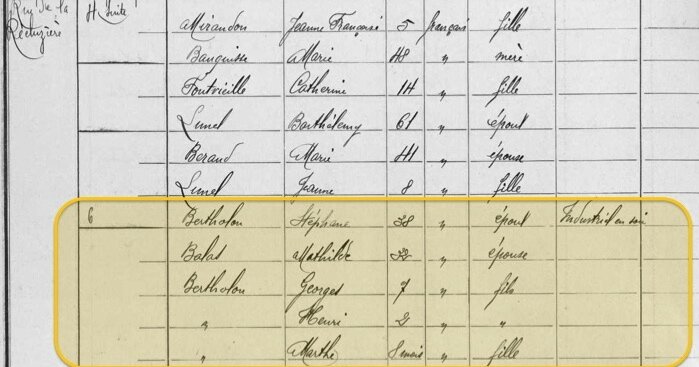 Rue de la 4 Suite Mirandon Jeanne Françoise 5 français fille
Marie 48 " mère
Fontvieille Catherine 14 " fille
Lunel Barthélemy 61 " épout
Beraud Marie 41 " épouse
Lunel Jeanne 8 " fille
6 Bertholon Stéphane 38 " épout Industriel en soie
Balas Mathilde 32 " épouse
Bertholon Georges 7 " fils
" Henri 2 " "
" Marthe 8 mois " fille